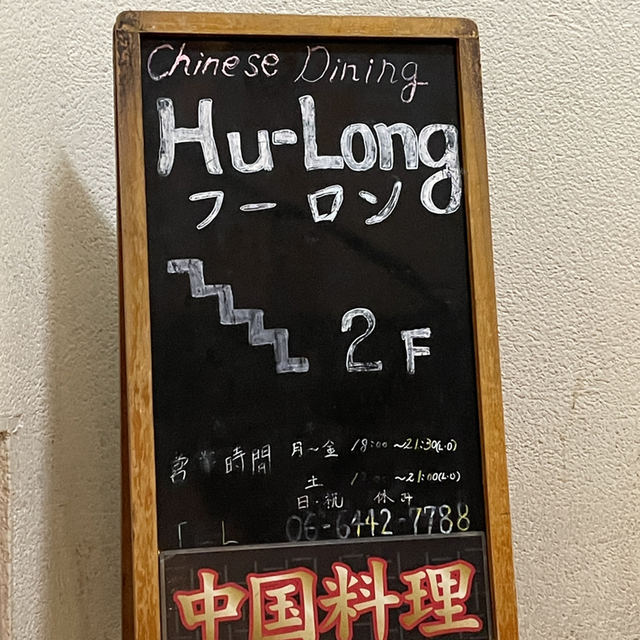 Chinese Dining
Hu-Long
フーロン
2F
営業時間 月〜金 18:00 〜21:30(L・O)
土 〜21:00(L・O)
日・祝 休み
06-6442-7788
中国料理